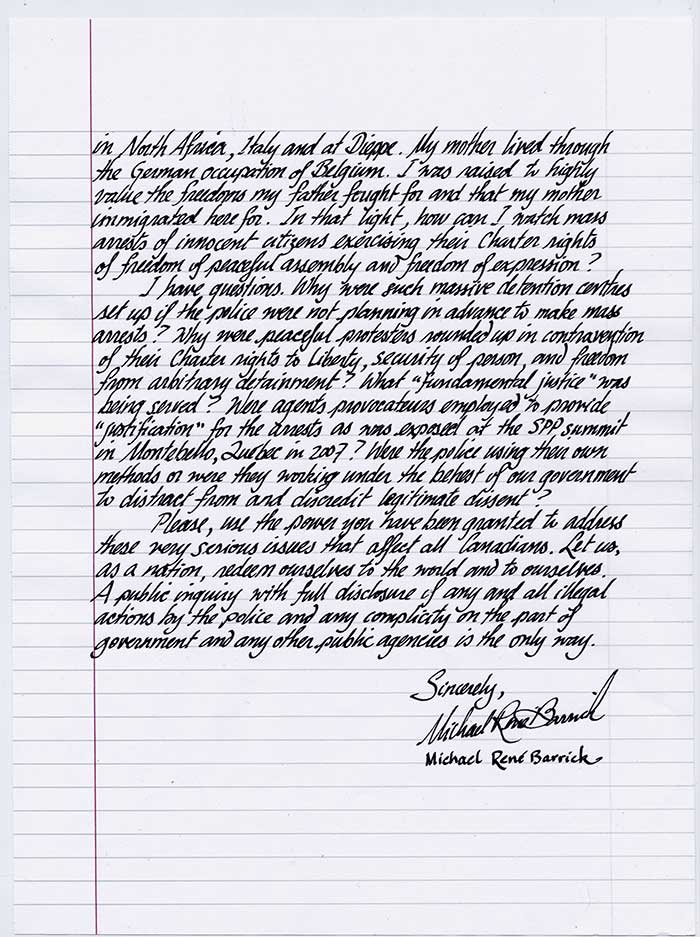 in North Africa, Italy and at Dieppe. My mother lived through
the German occupation of Belgium. I was raised to highly
value the freedoms my father fought for and that my mother
immigrated here for. In that light, how can I watch mass
arrests of innocent citizens exercising their Charter rights
of freedom of peaceful assembly and freedom of expression?
I have questions. Why were such massive detention centres
set up if the police were not planning in advance to make mass
arrests? Why were peaceful protesters rounded up in contravention
of their Charter rights to Liberty, security of person, and freedom
from arbitrary detainment? What "fundamental justice" was
being served? Were agents provocateurs employed to provide
"justification" for the arrests as was exposed at the SPP summit
in Montebello, Quebec in 2007? Were the police using their own
methods or were they working under the behest of our government
to distract from and discredit legitimate dissent?
Please, use the power you have been granted to address
these very serious issues that affect all Canadians. Let us,
as a nation, redeem ourselves to the world and to ourselves.
A public inquiry with full disclosure of any and all illegal
actions by the police and any complicity on the part of
government and any other public agencies is the only way.
Sincerely,
Michael René Barrick
Michael René Barrick